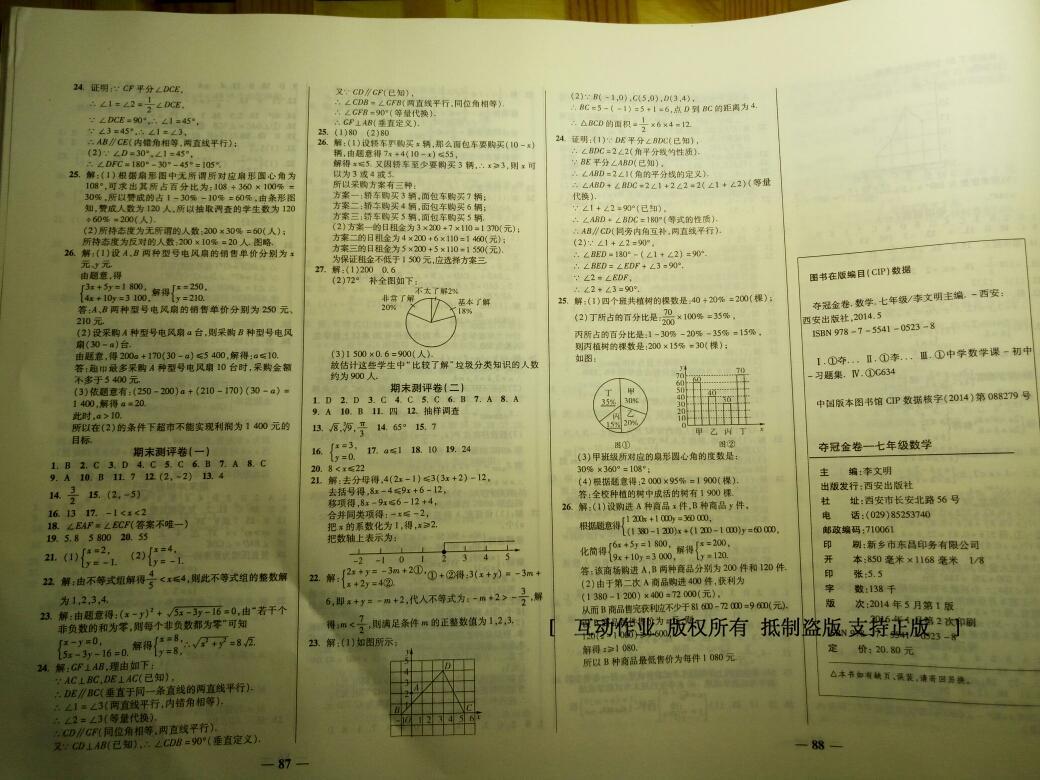 24. 证明:∵ CF 平分∠DCE,
∴ ∠1 = ∠2 = 1/2 ∠DCE,
∵ ∠DCE = 90°,∴ ∠1 = 45°,
∵ ∠3 = 45°,∴ ∠1 = ∠3,
∴ AB∥CE(内错角相等,两直线平行);
(2)∵ ∠D = 30°,∠1 = 45°,
∴ ∠DFC = 180° - 30° - 45° = 105°.
25. 解:(1)根据扇形图中无所谓所对应扇形圆心角为
108°,可求出其所占百分比为:108 ÷ 360 × 100% =
30%,所以赞成的占 1 - 30% - 10% = 60%,由条形图
知,赞成人数为 120 人,所以抽取调查的学生数为 120
÷ 60% = 200(人).
(2)所持态度为无所谓的人数:200 × 30% = 60(人);
所持态度为反对的人数:200 × 10% = 20 人.图略.
26. 解:(1)设 A、B 两种型号电风扇的销售单价分别为 x
元、y 元.
由题意,得
{3x + 5y = 1 800, 解得 {x = 250,
4x + 10y = 3 100, y = 210.
答:A、B 两种型号电风扇的销售单价分别为 250 元、
210 元.
(2)设采购 A 种型号电风扇 a 台,则采购 B 种型号电风
扇(30 - a)台.
由题意,得 200a + 170(30 - a)≤5 400,解得:a≤10.
答:超市最多采购 A 种型号电风扇 10 台时,采购金额
不多于 5 400 元.
(3)依题意有:(250 - 200)a + (210 - 170)(30 - a) =
1 400,解得 a = 20.
此时,a > 10.
所以在(2)的条件下超市不能实现利润为 1 400 元的
目标.
期末测评卷(一)
1. B 2. C 3. D 4. C 5. C 6. B 7. A 8. C
9. A 10. B 11. 7 12. (2, -2) 13. 4
14. 3/2 15. (2, -5)
16. 13 17. -1 < x < 2
18. ∠EAF = ∠ECF(答案不唯一)
19. 5.8 5 800 20. 55
21. (1) {x = 2, (2) {x = 4,
y = -1. y = -1.
22. 解:由不等式组解得 4/5 < x≤4,则此不等式组的整数解
为 1,2,3,4.
23. 解:由题意得:(x - y)² + √(5x - 3y - 16) = 0,由“若干个
非负数的和为零,则每个非负数都为零”可知
{x - y = 0, 解得 {x = 8, ∴ √(x² + y²) = 8√2.
5x - 3y - 16 = 0. y = 8,
24. 解:GF⊥AB,理由如下:
∵ AC⊥BC,DE⊥AC(已知),
∴ DE∥BC(垂直于同一条直线的两直线平行).
∴ ∠1 = ∠3(两直线平行,内错角相等).
∴ ∠2 = ∠3(等量代换).
∴ CD∥GF(同位角相等,两直线平行).
又∵ CD⊥AB(已知),∴ ∠CDB = 90°(垂直定义).
— 87 —
又∵ CD∥GF(已知),
∴ ∠CDB = ∠GFB(两直线平行,同位角相等).
∴ ∠GFB = 90°(等量代换).
∴ GF⊥AB(垂直定义).
25. (1)80 (2)80
26. 解:(1)设轿车要购买 x 辆,那么面包车要购买(10 - x)
辆,由题意得 7x + 4(10 - x)≤55,
解得 x≤5.又因轿车至少要购买 3 辆,∴ x≥3,则 x 可
以为 3 或 4 或 5.
所以采购方案有三种:
方案一:轿车购买 3 辆,面包车购买 7 辆;
方案二:轿车购买 4 辆,面包车购买 6 辆;
方案三:轿车购买 5 辆,面包车购买 5 辆.
(2)方案一的日租金为 3 × 200 + 7 × 110 = 1 370(元);
方案二的日租金为 4 × 200 + 6 × 110 = 1 460(元);
方案三的日租金为 5 × 200 + 5 × 110 = 1 550(元).
为保证租金不低于 1 500 元,应选择方案三.
27. 解:(1)200 0.6
(2)72° 补全图如下:
不太了解2%
非常了解
20%
基本了解
18%
(3)1 500 × 0.6 = 900(人).
故估计这些学生中“比较了解”垃圾分类知识的人数
约为 900 人.
期末测评卷(二)
1. D 2. D 3. C 4. C 5. C 6. B 7. A 8. A
9. A 10. B 11. 四 12. 抽样调查
14. 65° 15. 7
16. {x = 3, 17. a≤1 18. 10 19. 24
y = 0.
20. 8 < x≤22
21. 解:去分母得,4(2x - 1)≤3(3x + 2) - 12,
去括号得,8x - 4≤9x + 6 - 12,
移项得,8x - 9x≤6 - 12 + 4,
合并同类项得: - x≤ - 2,
把 x 的系数化为 1,得,x≥2.
把数轴上表示为:
-2 -1 0 1 2 3 4 5
22. 解: {2x + y = -3m + 2①, ① + ②得:3(x + y) = -3m +
x + 2y = 4②.
6,即 x + y = -m + 2,代入不等式为: -m + 2 > -3/2,解
得:m < 7/2,则满足条件 m 的正整数值为 1,2,3.
23. 解:(1)如图所示:
(2)∵ B( -1,0),C(5,0),D(3,4),
∴ BC = 5 - ( -1) = 5 + 1 = 6,点 D 到 BC 的距离为 4.
∴ △BCD 的面积 = 1/2 × 6 × 4 = 12.
24. 证明:(1)∵ DE 平分∠BDC(已知),
∴ ∠BDC = 2∠2(角平分线的性质).
∵ BE 平分∠ABD(已知),
∴ ∠ABD = 2∠1(角的平分线的定义).
∴ ∠ABD + ∠BDC = 2∠1 + 2∠2 = 2(∠1 + ∠2)(等量
代换).
∵ ∠1 + ∠2 = 90°(已知),
∴ ∠ABD + ∠BDC = 180°(等式的性质).
∴ AB∥CD(同旁内角互补,两直线平行).
(2)∵ ∠1 + ∠2 = 90°,
∴ ∠BED = 180° - (∠1 + ∠2) = 90°.
∴ ∠BED = ∠EDF + ∠3 = 90°.
∵ ∠2 = ∠EDF,
∴ ∠2 + ∠3 = 90°.
25. 解:(1)四个班共植树的棵数是:40 ÷ 20% = 200(棵);
(2)丁所占的百分比是:70/200 × 100% = 35%,
丙所占的百分比是:1 - 30% - 20% - 35% = 15%,
则丙植树的棵数是:200 × 15% = 30(棵);
如图:
丁 35% 甲 30%
丙 15% 乙 20%
图①
70 60 50 40 30 20 10 0
60 40 30 70
甲 乙 丙 丁 x
图②
(3)甲班级所对应的扇形圆心角的度数是:
30% × 360° = 108°;
(4)根据题意得:2 000 × 95% = 1 900(棵).
答:全校种植的树中成活的树有 1 900 棵.
26. 解:(1)设购进 A 种商品 x 件,B 种商品 y 件,
根据题意得 {1 200x + 1 000y = 360 000,
(1 380 - 1 200)x + (1 200 - 1 000)y = 60 000,
化简得 {6x + 5y = 1 800, 解得 {x = 200,
9x + 10y = 3 000, y = 120.
答:该商场购进 A、B 两种商品分别为 200 件和 120 件.
(2)由于第二次 A 商品购进 400 件,获利为
(1 380 - 1 200) × 400 = 72 000(元),
从而 B 商品售完获利应不少于 81 600 - 72 000 = 9 600(元).
解得 z≥1 080.
所以 B 种商品最低售价为每件 1 080 元.
— 88 —
图书在版编目(CIP)数据
夺冠金卷.数学.七年级/李文明主编. - 西安:
西安出版社,2014.5
ISBN 978 - 7 - 5541 - 0523 - 8
Ⅰ.①夺… Ⅱ.①李… Ⅲ.①中学数学课 - 初中
- 习题集. Ⅳ.①G634
中国版本图书馆 CIP 数据核字(2014)第 088279 号
夺冠金卷—七年级数学
主 编:李文明
出版发行:西安出版社
社 址:西安市长安北路 56 号
电 话:(029)85253740
邮政编码:710061
印 刷:新乡市东昌印务有限公司
开 本:850 毫米 × 1168 毫米 1/8
印 张:5.5
字 数:138 千
版 次:2014 年 5 月第 1 版
定 价:20.80 元
△本书如有缺页、误装,请寄回更换.
版权所有 抵制盗版 支持正版 ]